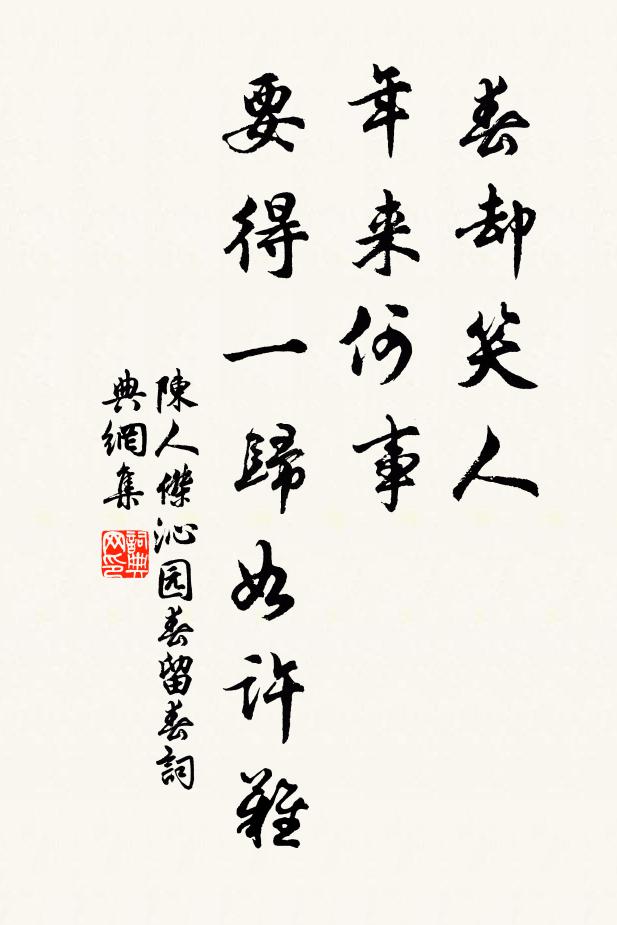 春却笑人
年来何事
要得一歸如许難
陳人傑沁园春留春詞
典網集
詞典
网印